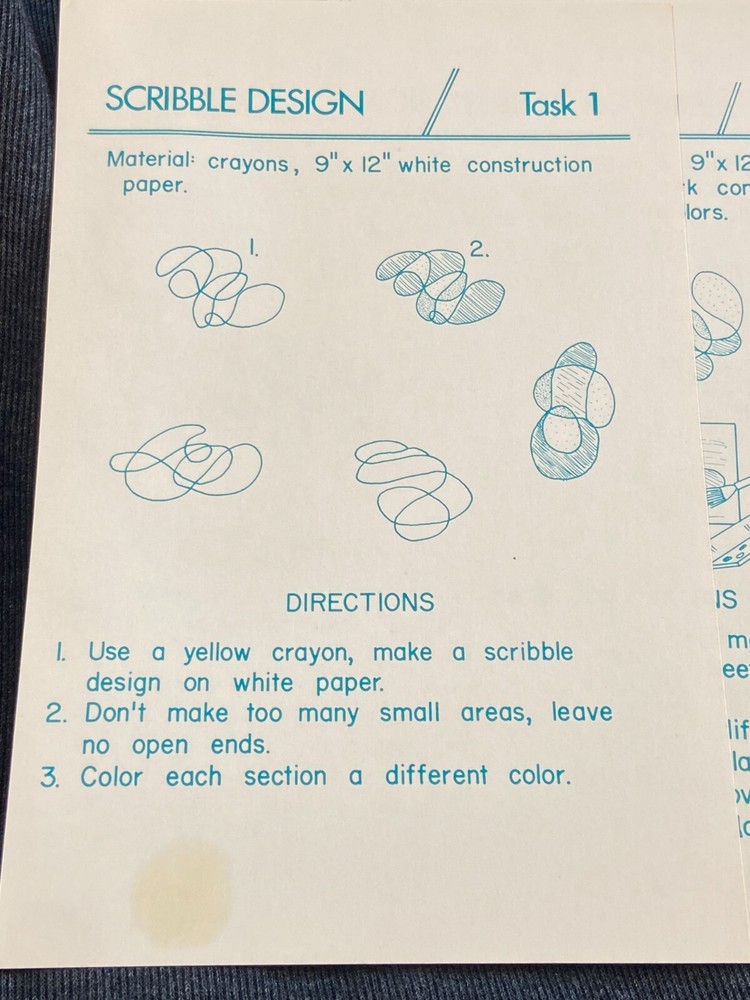 SCRIBBLE DESIGN
Task 1
Material: crayons, 9" x 12" white construction
paper.
1.
2.
DIRECTIONS
1. Use a yellow crayon, make a scribble
design on white paper.
2. Don't make too many small areas, leave
no open ends.
3. Color each section a different color.
9" x 12